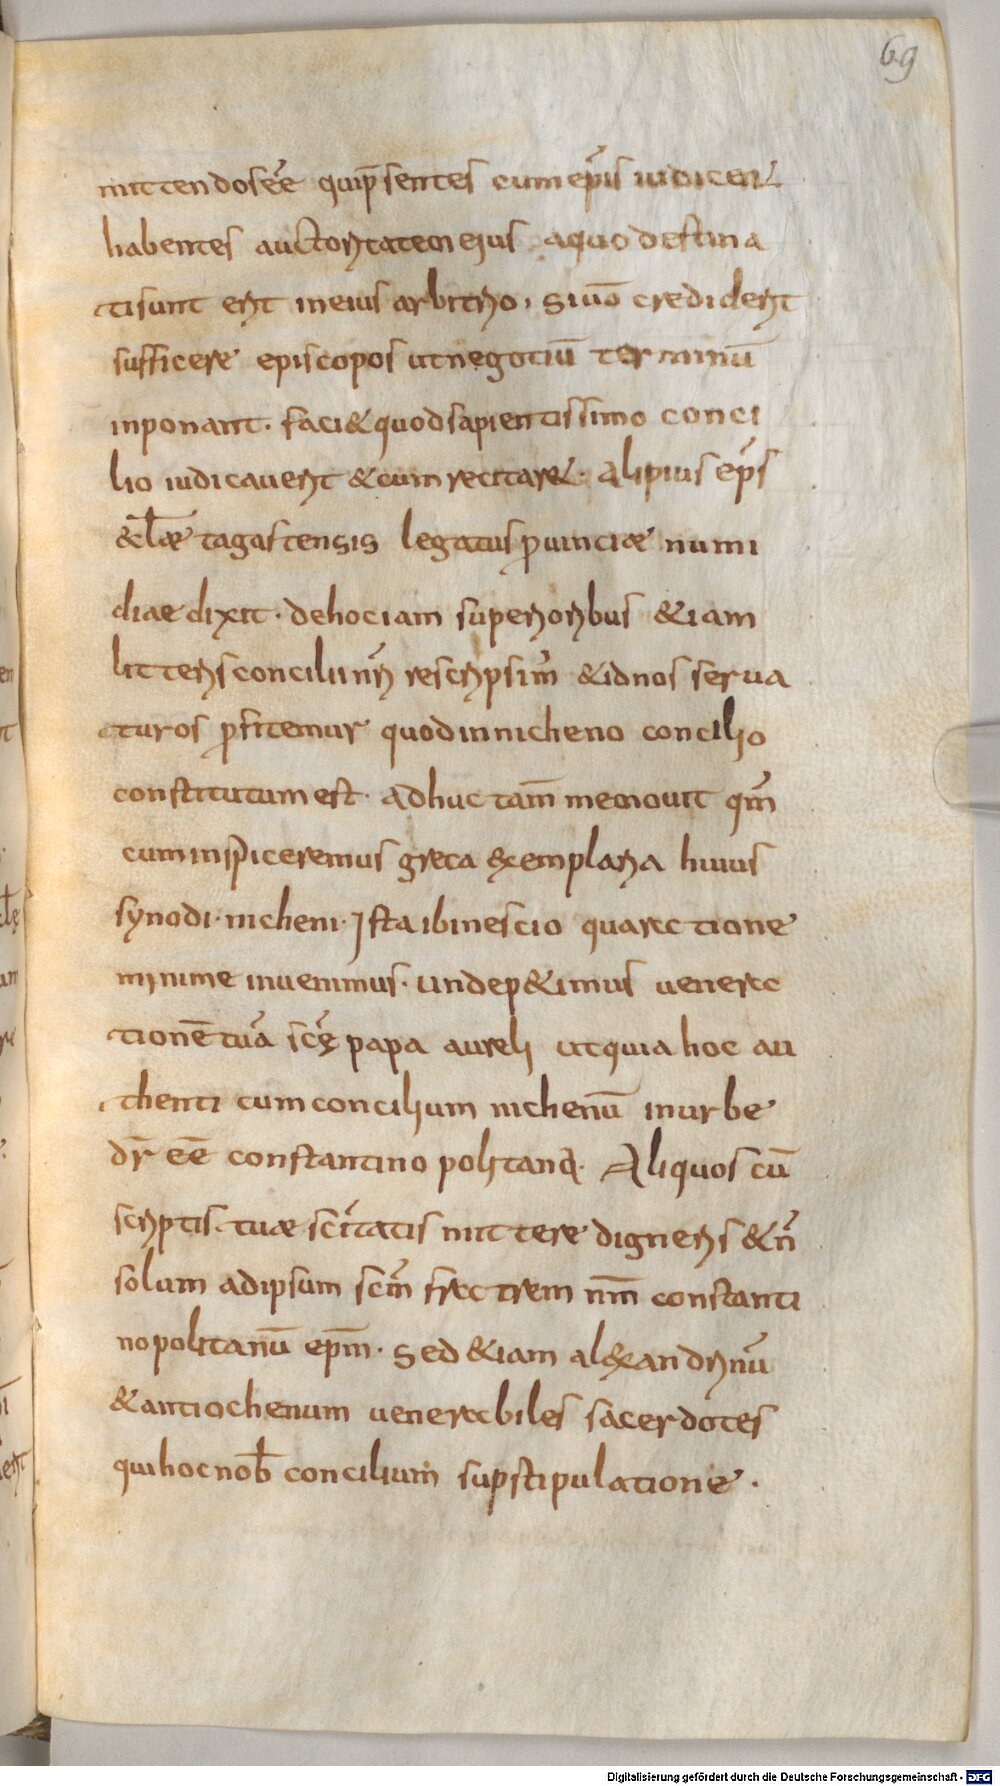 69
mittendos eē quip̄sentes cum ep̄is iudicent
habentes auctoritatem eius aquo destina
ti sunt erit ineius arbitrio, siuō crediderit
sufficere episcopos utnegotiū terminū
inponant. faci&quodsapientissimo conci
lio iudicauerit &cum recitar&. Alipius ep̄s
&cl̄ae tagastensis legatus ꝓuinciae numi
diae dixit. dehociam superioribus &iam
litteris concilii nr̄i rescripsim̄ &idnos serua
turos ꝓfitemur quodinnicheno concilio
constitutum est. adhuc tam̄ memouit qm̄
cum inspiceremus greca exemplaria huius
synodi. nicheni. Ista ibi nescio qua ratione
minime inuenimus. undep&imus uenera
tionē tuā sc̄ę papa aureli utquia hoc au
thenticum concilium nichenū inurbe
dr̄ eē constantinopolitana. Aliquos cū
scriptis. tuae sc̄itatis mittere digneris &n̄
solum adipsum sc̄m fratrem nm̄ constanti
nopolitanū ep̄m. Sed &iam alexandrinū
&antiochenum uenerabiles sacerdotes
qui hoc nob̄ concilium supstipulatione.
Digitalisierung gefördert durch die Deutsche Forschungsgemeinschaft - DFG